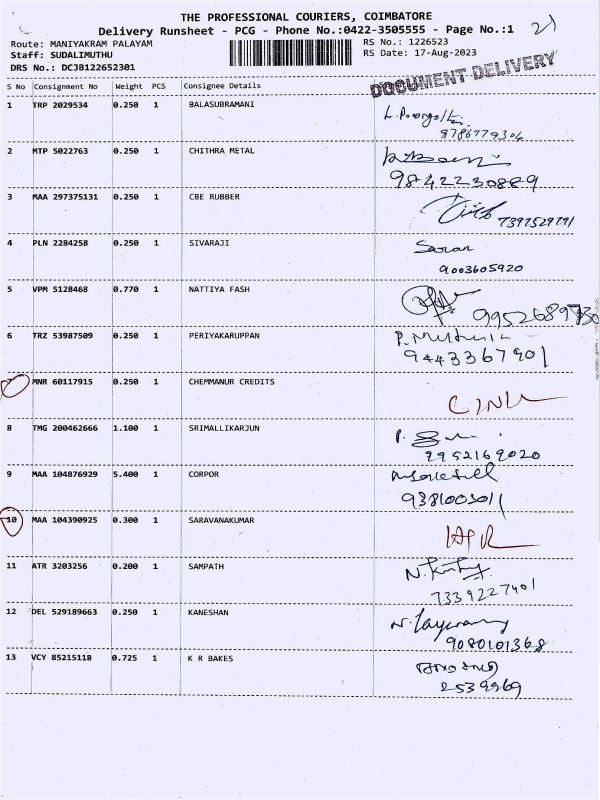 THE PROFESSIONAL COURIERS, COIMBATORE
Delivery Runsheet - PCG - Phone No.:0422-3505555 - Page No.:1
21
Route: MANIYAKRAM PALAYAM
RS No.: 1226523
Staff: SUDALIMUTHU
RS Date: 17-Aug-2023
DRS No.: DCJB122652301
DOCUMENT DELIVERY
S No Consignment No Weight PCS Consignee Details
1 TRP 2029534 0.250 1 BALASUBRAMANI
9786779304
2 MTP 5022763 0.250 1 CHITHRA METAL
9842230889
3 MAA 297375131 0.250 1 CBE RUBBER
7397529791
4 PLN 2284258 0.250 1 SIVARAJI
Saran
9003605920
5 VPM 5128468 0.770 1 NATTIYA FASH
9952689730
6 TRZ 53987509 0.250 1 PERIYAKARUPPAN
9443367901
7 MNR 60117915 0.250 1 CHEMMANUR CREDITS
8 TMG 200462666 1.100 1 SRIMALLIKARJUN
9952169020
9 MAA 104876929 5.400 1 CORPOR
9381003011
10 MAA 104390925 0.300 1 SARAVANAKUMAR
11 ATR 3203256 0.200 1 SAMPATH
7339227401
12 DEL 529189663 0.250 1 KANESHAN
9080101368
13 VCY 85215118 0.725 1 K R BAKES
2539969